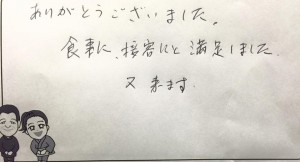 ありがとうございました。
食事に、接客にと満足しました。
又来ます